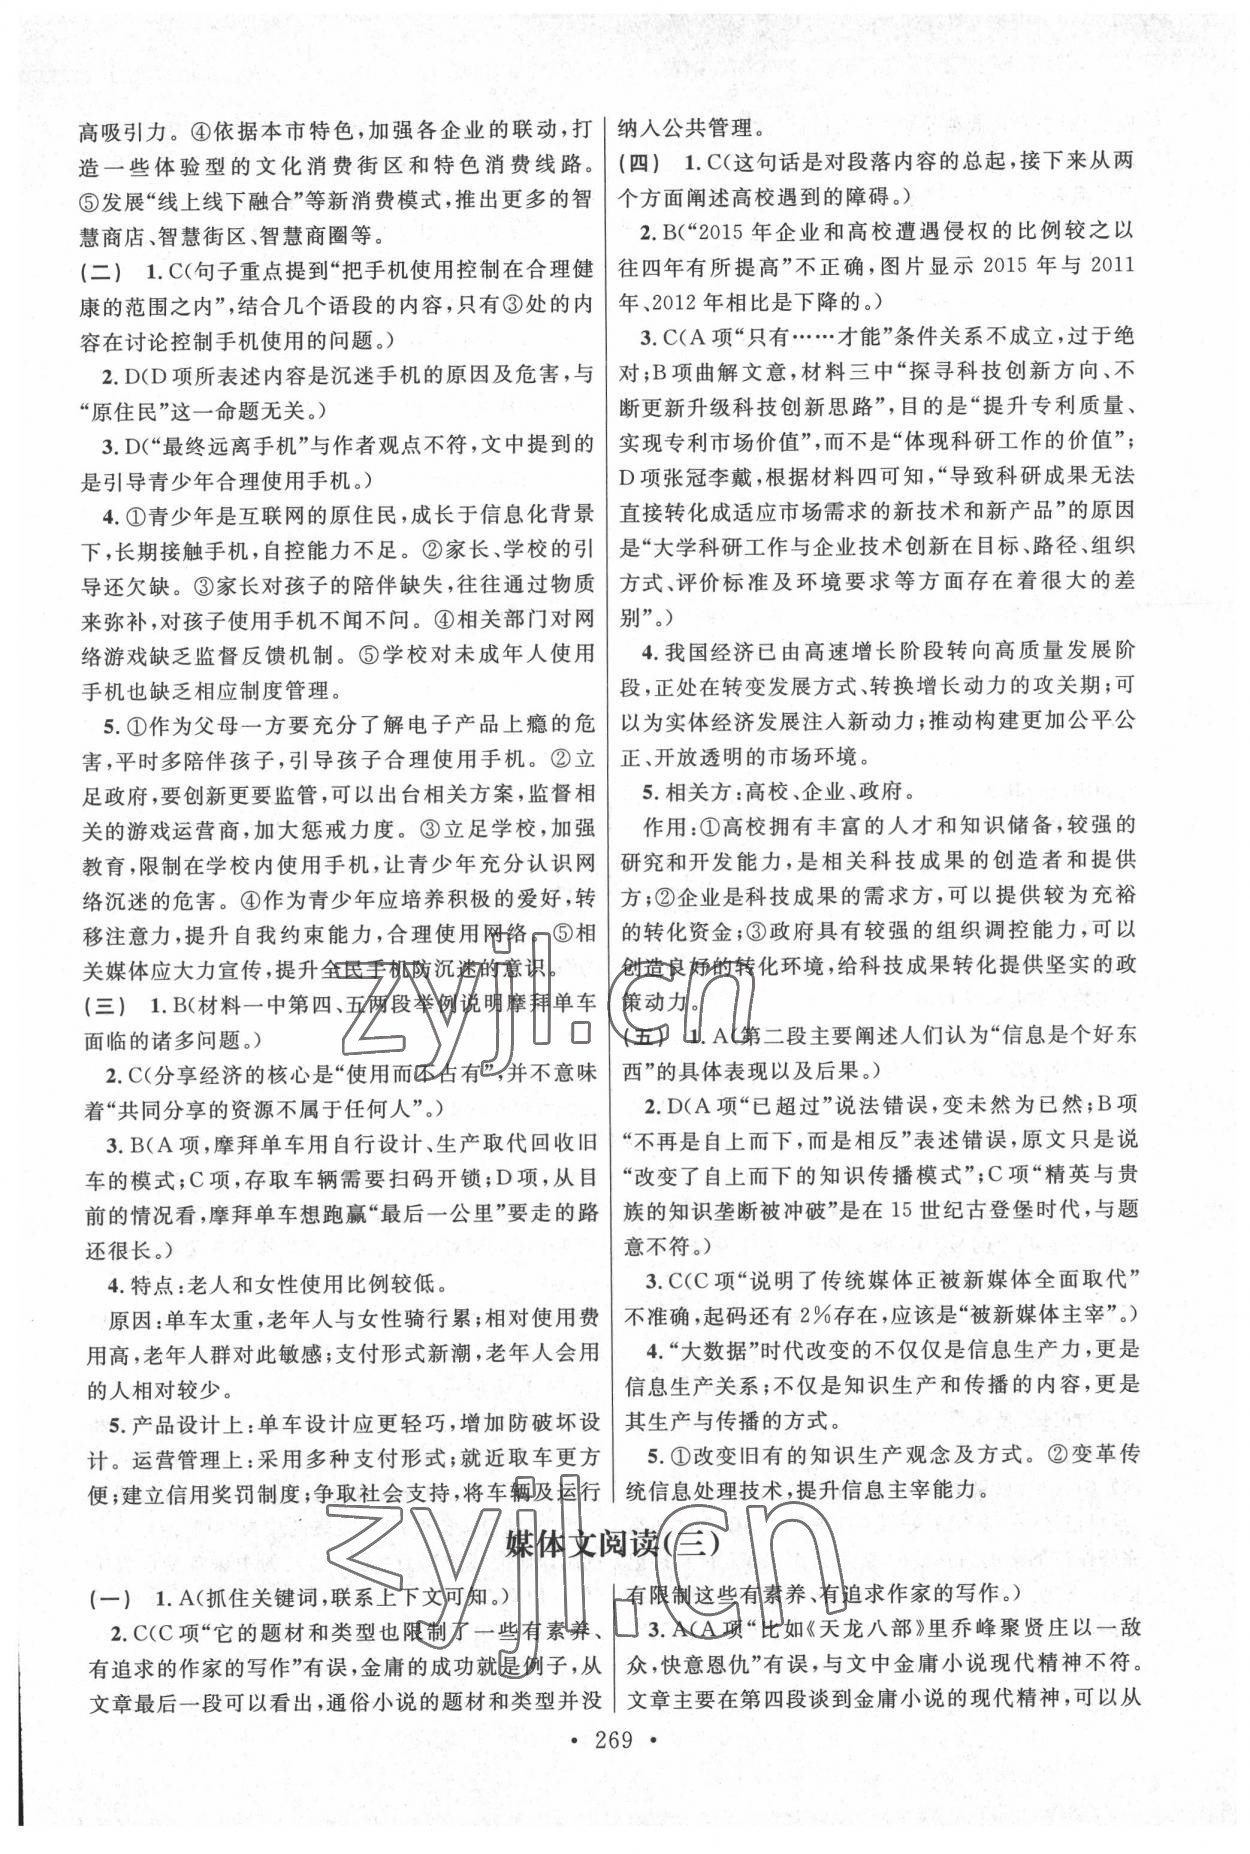 高吸引力。④依据本市特色,加强各企业的联动,打
造一些体验型的文化消费街区和特色消费线路。
⑤发展“线上线下融合”等新消费模式,推出更多的智
慧商店、智慧街区、智慧商圈等。
(二) 1.C(句子重点提到“把手机使用控制在合理健
康的范围之内”,结合几个语段的内容,只有③处的内
容在讨论控制手机使用的问题。)
2.D(D项所表述内容是沉迷手机的原因及危害,与
“原住民”这一命题无关。)
3.D(“最终远离手机”与作者观点不符,文中提到的
是引导青少年合理使用手机。)
4.①青少年是互联网的原住民,成长于信息化背景
下,长期接触手机,自控能力不足。②家长、学校的引
导还欠缺。③家长对孩子的陪伴缺失,往往通过物质
来弥补,对孩子使用手机不闻不问。④相关部门对网
络游戏缺乏监督反馈机制。⑤学校对未成年人使用
手机也缺乏相应制度管理。
5.①作为父母一方要充分了解电子产品上瘾的危
害,平时多陪伴孩子,引导孩子合理使用手机。②立
足政府,要创新更要监管,可以出台相关方案,监督相
关的游戏运营商,加大惩戒力度。③立足学校,加强
教育,限制在学校内使用手机,让青少年充分认识网
络沉迷的危害。④作为青少年应培养积极的爱好,转
移注意力,提升自我约束能力,合理使用网络。⑤相
关媒体应大力宣传,提升全民手机防沉迷的意识。
(三) 1.B(材料一中第四、五两段举例说明摩拜单车
面临的诸多问题。)
2.C(分享经济的核心是“使用而不占有”,并不意味
着“共同分享的资源不属于任何人”。)
3.B(A项,摩拜单车用自行设计、生产取代回收旧
车的模式;C项,存取车辆需要扫码开锁;D项,从目
前的情况看,摩拜单车想跑赢“最后一公里”要走的路
还很长。)
4.特点:老人和女性使用比例较低。
原因:单车太重,老年人与女性骑行累;相对使用费
用高,老年人群对此敏感;支付形式新潮,老年人会用
的人相对较少。
5.产品设计上:单车设计应更轻巧,增加防破坏设
计。运营管理上:采用多种支付形式;就近取车更方
便;建立信用奖罚制度;争取社会支持,将车辆及运行
纳入公共管理。
(四) 1.C(这句话是对段落内容的总起,接下来从两
个方面阐述高校遇到的障碍。)
2.B(“2015年企业和高校遭遇侵权的比例较之以
往四年有所提高”不正确,图片显示2015年与2011
年、2012年相比是下降的。)
3.C(A项“只有……才能”条件关系不成立,过于绝
对;B项曲解文意,材料三中“探寻科技创新方向、不
断更新升级科技创新思路”,目的是“提升专利质量、
实现专利市场价值”,而不是“体现科研工作的价值”;
D项张冠李戴,根据材料四可知,“导致科研成果无法
直接转化成适应市场需求的新技术和新产品”的原因
是“大学科研工作与企业技术创新在目标、路径、组织
方式、评价标准及环境要求等方面存在着很大的差
别”。)
4.我国经济已由高速增长阶段转向高质量发展阶
段,正处在转变发展方式、转换增长动力的攻关期;可
以为实体经济发展注入新动力;推动构建更加公平公
正、开放透明的市场环境。
5.相关方:高校、企业、政府。
作用:①高校拥有丰富的人才和知识储备,较强的
研究和开发能力,是相关科技成果的创造者和提供
方;②企业是科技成果的需求方,可以提供较为充裕
的转化资金;③政府具有较强的组织调控能力,可以
创造良好的转化环境,给科技成果转化提供坚实的政
策动力。
(五) 1.A(第二段主要阐述人们认为“信息是个好东
西”的具体表现以及后果。)
2.D(A项“已超过”说法错误,变未然为已然;B项
“不再是自上而下,而是相反”表述错误,原文只是说
“改变了自上而下的知识传播模式”;C项“精英与贵
族的知识垄断被冲破”是在15世纪古登堡时代,与题
意不符。)
3.C(C项“说明了传统媒体正被新媒体全面取代”
不准确,起码还有2%存在,应该是“被新媒体主宰”。)
4.“大数据”时代改变的不仅仅是信息生产力,更是
信息生产关系;不仅是知识生产和传播的内容,更是
其生产与传播的方式。
5.①改变旧有的知识生产观念及方式。②变革传
统信息处理技术,提升信息主宰能力。
媒体文阅读(三)
(一) 1.A(抓住关键词,联系上下文可知。)
2.C(C项“它的题材和类型也限制了一些有素养、
有追求的作家的写作”有误,金庸的成功就是例子,从
文章最后一段可以看出,通俗小说的题材和类型并没
有限制这些有素养、有追求作家的写作。)
3.A(A项“比如《天龙八部》里乔峰聚贤庄以一敌
众,快意恩仇”有误,与文中金庸小说现代精神不符。
文章主要在第四段谈到金庸小说的现代精神,可以从
• 269 •
zyjl.cn
zyjl.cn